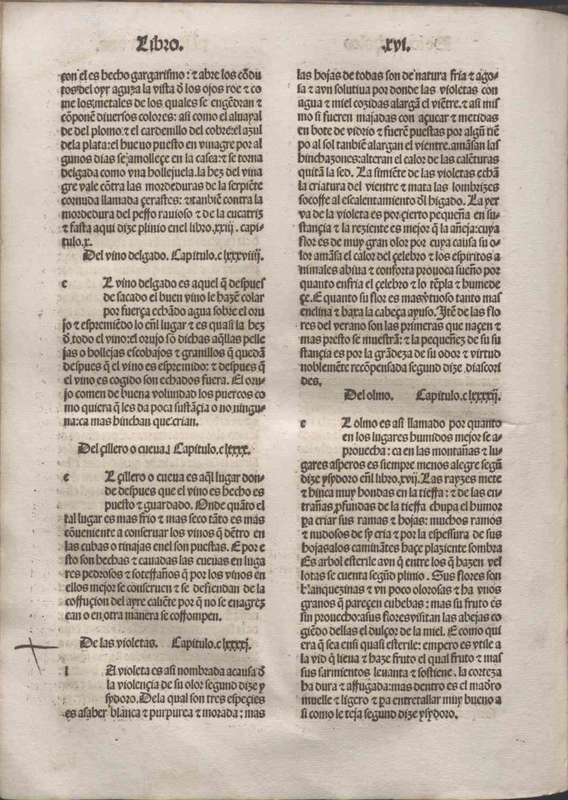 Libro.
.xvi.
con el es hecho gargarismo: ⁊ abre los cõdu
tos del oyr aguza la vista d̃ los ojos roe ⁊ co
me los metales de los quales se engẽdran ⁊
cõponẽ diuersos colores: asi como el aluayal
de del plomo: ⁊ el cardenillo del cobre: el azul
dela plata: el hueuo puesto en vinagre por al
gunos dias se amolleçe en la casca: ⁊ se torna
delgada como vna hollejuela. la hez del vina
gre vale cõtra las mordeduras de la serpiẽte
cornuda llamada çerastes: ⁊ tãbiẽ contra la
mordedura del perro rauioso ⁊ de la cucatriz
⁊ fasta aqui dize plinio en el libro .xxiij. capi-
tulo .x.
Del vino delgado. Capitulo. clxxxviiij.
e L vino delgado es aquel q̃ despues
de sacado el buen vino le hazẽ colar
por fuerça echãdo agua sobre el oru
jo ⁊ espremiẽdo lo eñl lugar ⁊ es quasi la hez
d̃ todo el vino: el orujo sõ dichas aq̃llas pelle
jas o hollejas escobajos ⁊ granillos q̃ quedã
despues q̃ el vino es espremido: ⁊ despues q̃
el vino es cogido son echados fuera. El oru-
jo comen de buena voluntad los puercos co
mo quiera q̃ les da poca sustãçia o no ningu
na: ca mas hinchan que crian.
Del çillero o cueva. Capitulo. clxxx.
e L çillero o cueua es aq̃l lugar don-
de despues que el vino es hecho es
puesto ⁊ guardado. Onde quãto el
tal lugar es mas frio ⁊ mas seco tãto es mas
cõueniente a conseruar los vinos q̃ dẽtro en
las cubas o tinajas en el son puestas. E por e
sto son hechas ⁊ cauadas las cueuas en luga
res pedrosos ⁊ soterraños q̃ por los vinos en
ellos mejor se conseruen ⁊ se defiendan de la
corruçion del ayre caliẽte por q̃ no se enagrez
can o en otra manera se corrompen.
De las violetas. Capitulo. clxxxxj.
l A violeta es asi nombrada a causa d̃
la violençia de su olor segund dize y
sydoro. De la qual son tres espeçies
es a saber blanca ⁊ purpurea ⁊ morada: mas
las hojas de todas son de natura fria ⁊ aguo
sa ⁊ avn solutiua por donde las violetas con
agua ⁊ miel cozidas alargã el viẽtre. ⁊ asi mis
mo si fueren majadas con açucar ⁊ metidas
en bote de vidrio ⁊ fuerẽ puestas por algũ tiẽ
po al sol tanbiẽ alargan el vientre. amãsan las
hinchazones: alteran el calor de las calẽturas
quitã la sed. La simiẽte de las violetas echa
la criatura del vientre ⁊ mata las lombrizes
socorre al escalentamiento dl higado. La yer
va de la violeta es por çierto pequeña en su-
stançia ⁊ la reziente es mejor q̃ la añeja: cuya
flor es de muy gran olor por cuya causa su o-
lor amãsa el calor del çelebro ⁊ los espiritos a
nimales abiua ⁊ conforta prouoca sueño por
quanto enfria el çelebro ⁊ lo tẽpla ⁊ humede
çe. E quanto su flor es mas vertuoso tanto mas
enclina ⁊ baxa la cabeça ayuso. Jtẽ de las flo
res del verano son las primeras que naçen ⁊
mas presto se muestrã: ⁊ la pequeñez de su su
stançia es por la grãdeza de su odor ⁊ virtud
noblemẽte recõpensada segund dize diascori
des.
Del olmo. Capitulo. clxxxxij.
e L olmo es asi llamado por quanto
en los lugares humidos mejor se a-
prouecha: ca en las montañas ⁊ lu-
gares asperos es siempre menos alegre segũ
dize ysydoro eñl libro. xvij. Las rayzes mete
⁊ hinca muy hondas en la tierra: ⁊ de las en-
trañas profundas de la tierra chupa el humor
pa criar sus ramas ⁊ hojas: muchos ramos
⁊ nudosos de sy cria ⁊ por la espessura de sus
hojas a los caminãtes haçe plaziente sombra
Es arbol esterile avn q̃ entre los q̃ hazen ve-
llotas se cuenta segũd plinio. Sus flores son
blanquezinas ⁊ vn poco olorosas ⁊ ha vnos
granos q̃ pareçen cubebas: mas su fruto es
sin prouecho: a sus flores visitan las abejas co
giẽdo dellas el dulçor de la miel. E como qui
era q̃ sea ensi quasi esterile: empero es vtile a
la vid q̃ lieua ⁊ haze fruto el qual fruto ⁊ mas
sus sarmientos leuanta ⁊ sostiene. la corteza
ha dura ⁊ arrugada: mas dentro es el madro
muelle ⁊ ligero ⁊ pa entretallar muy bueno a
si como le teja segund dize ysydoro.